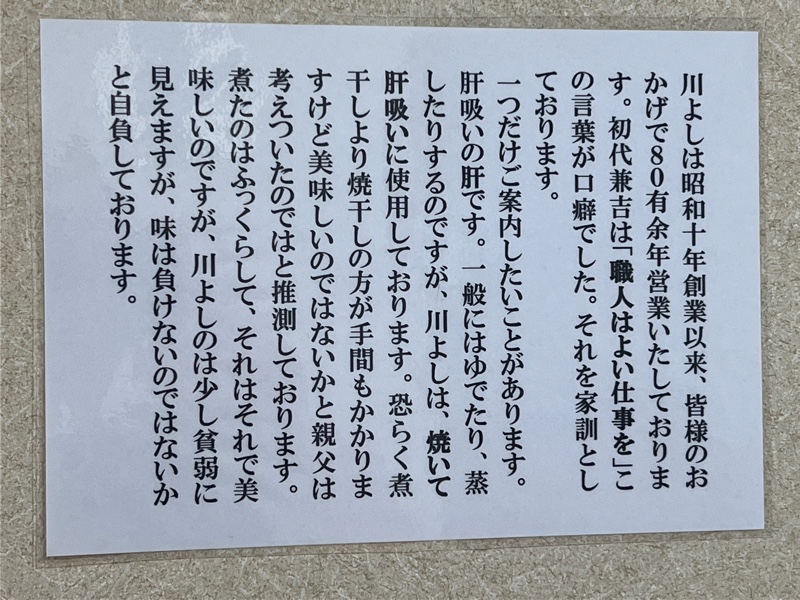 川よしは昭和十年創業以来、皆様のお
かげで８０有余年営業いたしておりま
す。初代兼吉は「職人はよい仕事を」こ
の言葉が口癖でした。それを家訓とし
ております。
一つだけご案内したいことがあります。
肝吸いの肝です。一般にはゆでたり、蒸
したりするのですが、川よしは、焼いて
肝吸いに使用しております。恐らく煮
干しより焼干しの方が手間もかかりま
すけど美味しいのではないかと親父は
考えついたのではと推測しております。
煮たのはふっくらして、それはそれで美
味しいのですが、川よしのは少し貧弱に
見えますが、味は負けないのではないか
と自負しております。